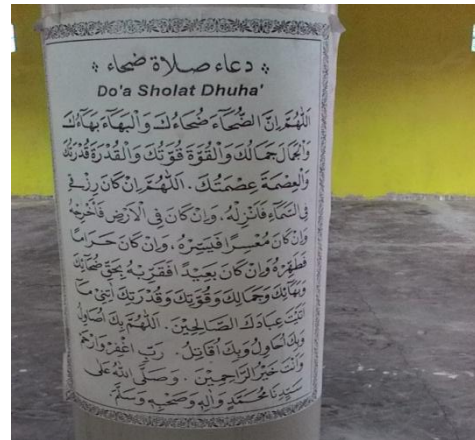 دعاء صلاة ضحاء
Do'a Sholat Dhuha'
اَللّٰهُمَّ اِنَّ الضُّحَآءَ ضُحَاءُكَ وَالْبَهَآءَ بَهَآءُكَ
وَالْجَمَالَ جَمَالُكَ وَالْقُوَّةَ قُوَّتُكَ وَالْقُدْرَةَ قُدْرَتُكَ
وَالْعِصْمَةَ عِصْمَتُكَ . اَللّٰهُمَّ اِنْ كَانَ رِزْقِى
فِى السَّمَآءِ فَانْزِلْهُ ، وَاِنْ كَانَ فِى الْاَرْضِ فَاَخْرِجْهُ
وَاِنْ كَانَ مُعْسِرًا فَيَسِّرْهُ ، وَاِنْ كَانَ حَرَامًا
فَطَهِّرْهُ وَاِنْ كَانَ بَعِيْدًا فَقَرِّبْهُ بِحَقِّ ضُحَائِكَ
وَبَهَائِكَ وَجَمَالِكَ وَقُوَّتِكَ وَقُدْرَتِكَ اٰتِنِىْ مَآ
اٰتَيْتَ عِبَادَكَ الصَّالِحِيْنَ . اَللّٰهُمَّ بِكَ اُصَاوِلُ
وَبِكَ اُحَاوِلُ وَبِكَ اُقَاتِلُ . رَبِّ اغْفِرْ وَارْحَمْ
وَاَنْتَ خَيْرُ الرَّاحِمِيْنَ . وَصَلَّى اللهُ عَلٰى
سَيِّدِنَا مُحَمَّدٍ وَاٰلِهٖ وَصَحْبِهٖ وَسَلَّمَ .